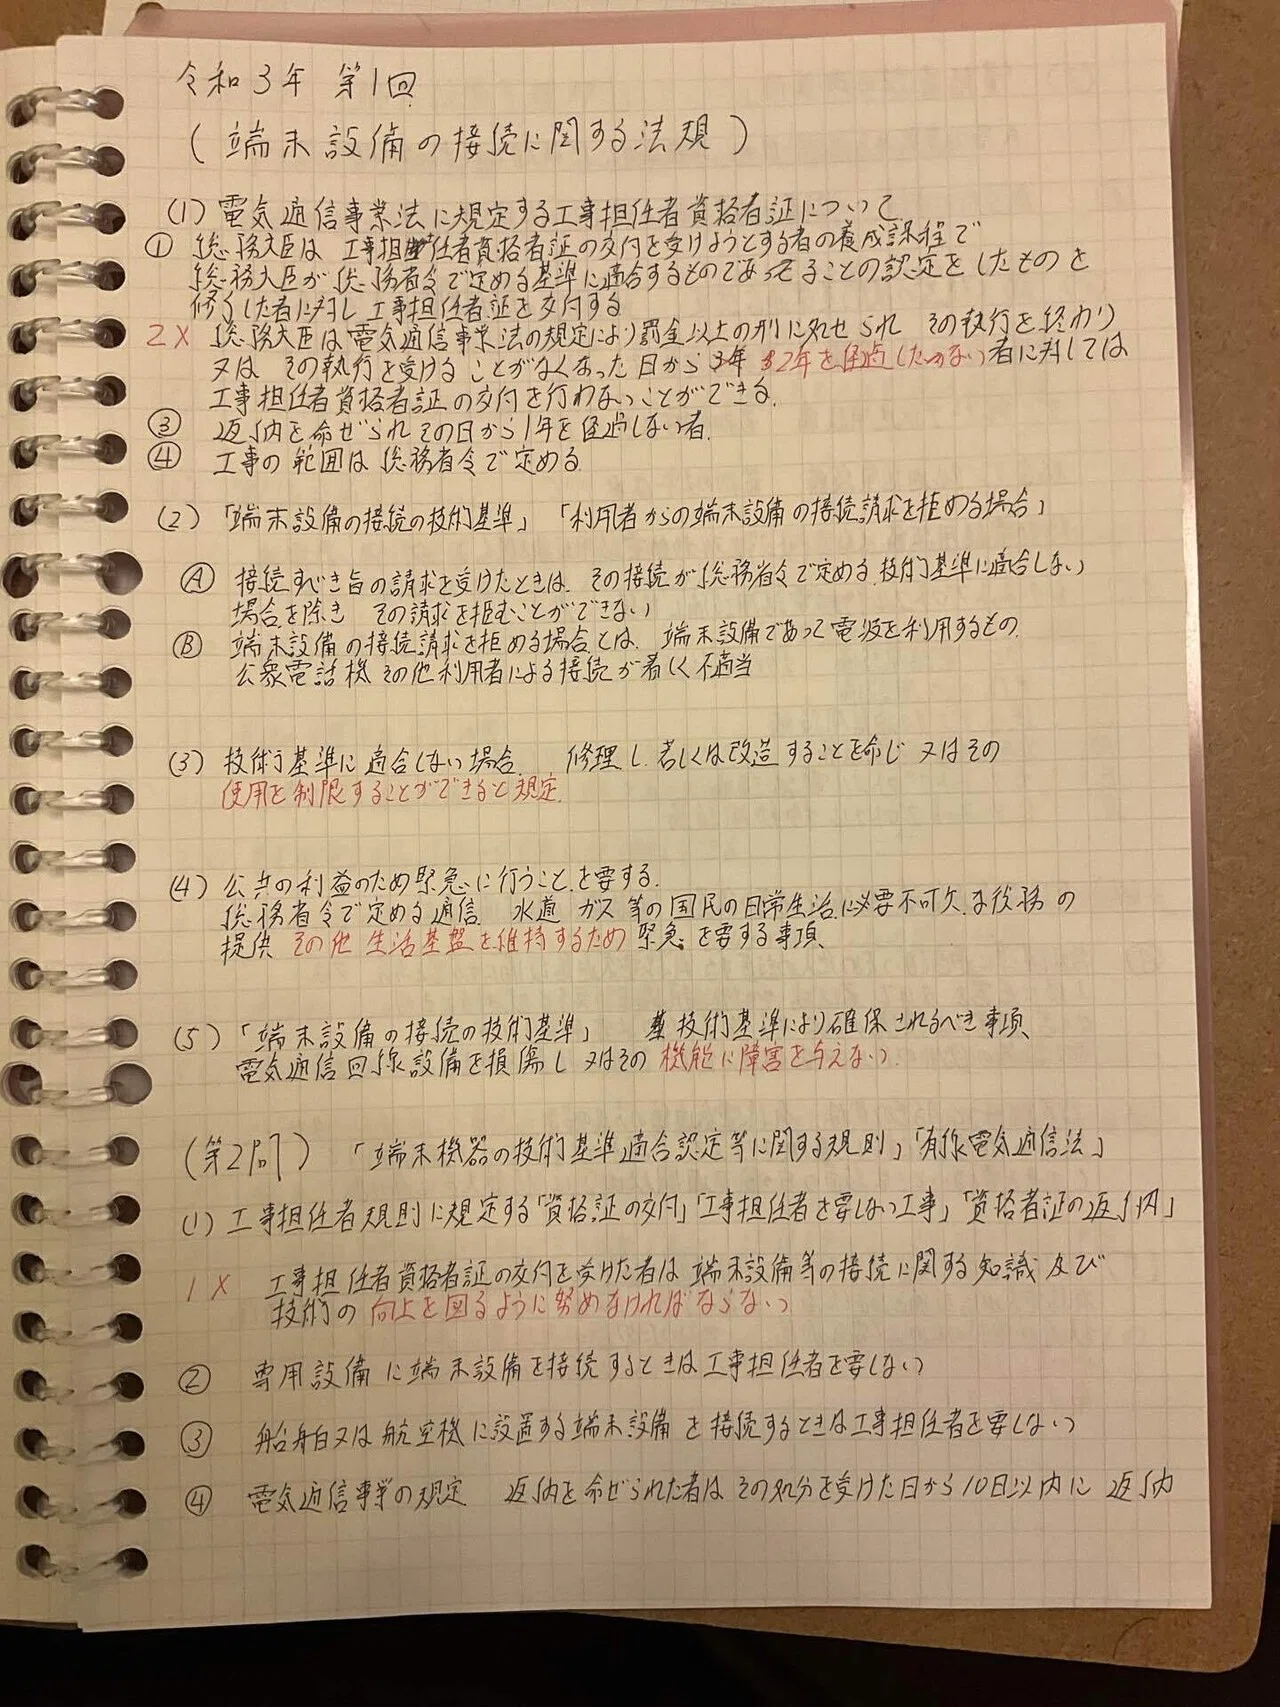 令和3年 第1回
(端末設備の接続に関する法規)
(1) 電気通信事業法に規定する工事担任者資格者証について
① 総務大臣は 工事担任者資格者証の交付を受けようとする者の養成課程で
総務大臣が総務省令で定める基準に適合するものであることの認定をしたものを
修了した者に対し工事担任者証を交付する
2× 総務大臣は電気通信事業法の規定により罰金以上の刑に処せられ その執行を終わり
又は その執行を受けることがなくなった日から 2年を経過しない者に対しては
工事担任者資格者証の交付を行わないことができる.
③ 返納を命ぜられその日から1年を経過しない者.
④ 工事の範囲は総務省令で定める
(2) 「端末設備の接続の技術基準」「利用者からの端末設備の接続請求を拒める場合」
Ⓐ 接続すべき旨の請求を受けたときは その接続が総務省令で定める技術基準に適合しない
場合を除き その請求を拒むことができない
Ⓑ 端末設備の接続請求を拒める場合とは 端末設備であって電波を利用するもの
公衆電話機 その他利用者による接続が著しく不適当
(3) 技術基準に適合しない場合. 修理し.若しくは改造することを命じ 又はその
使用を制限することができると規定.
(4) 公共の利益のため緊急に行うことを要する.
総務省令で定める通信 水道 ガス 等の国民の日常生活に必要不可欠な役務の
提供 その他 生活基盤を維持するため 緊急を要する事項
(5) 「端末設備の接続の技術基準」 技術基準により確保されるべき事項
電気通信回線設備を損傷し 又はその 機能に障害を与えない.
(第2問) 「端末機器の技術基準適合認定等に関する規則」「有線電気通信法」
(1) 工事担任者規則に規定する「資格証の交付」「工事担任者を要しない工事」「資格者証の返納」
1 × 工事担任者資格者証の交付を受けた者は 端末設備等の接続に関する知識及び
技術の 向上を図るように努めなければならない
② 専用設備に端末設備を接続するときは工事担任者を要しない
③ 船舶又は航空機に設置する端末設備を接続するときは工事担任者を要しない
④ 電気通信事業の規定 返納を命ぜられた者は その処分を受けた日から10日以内に 返納